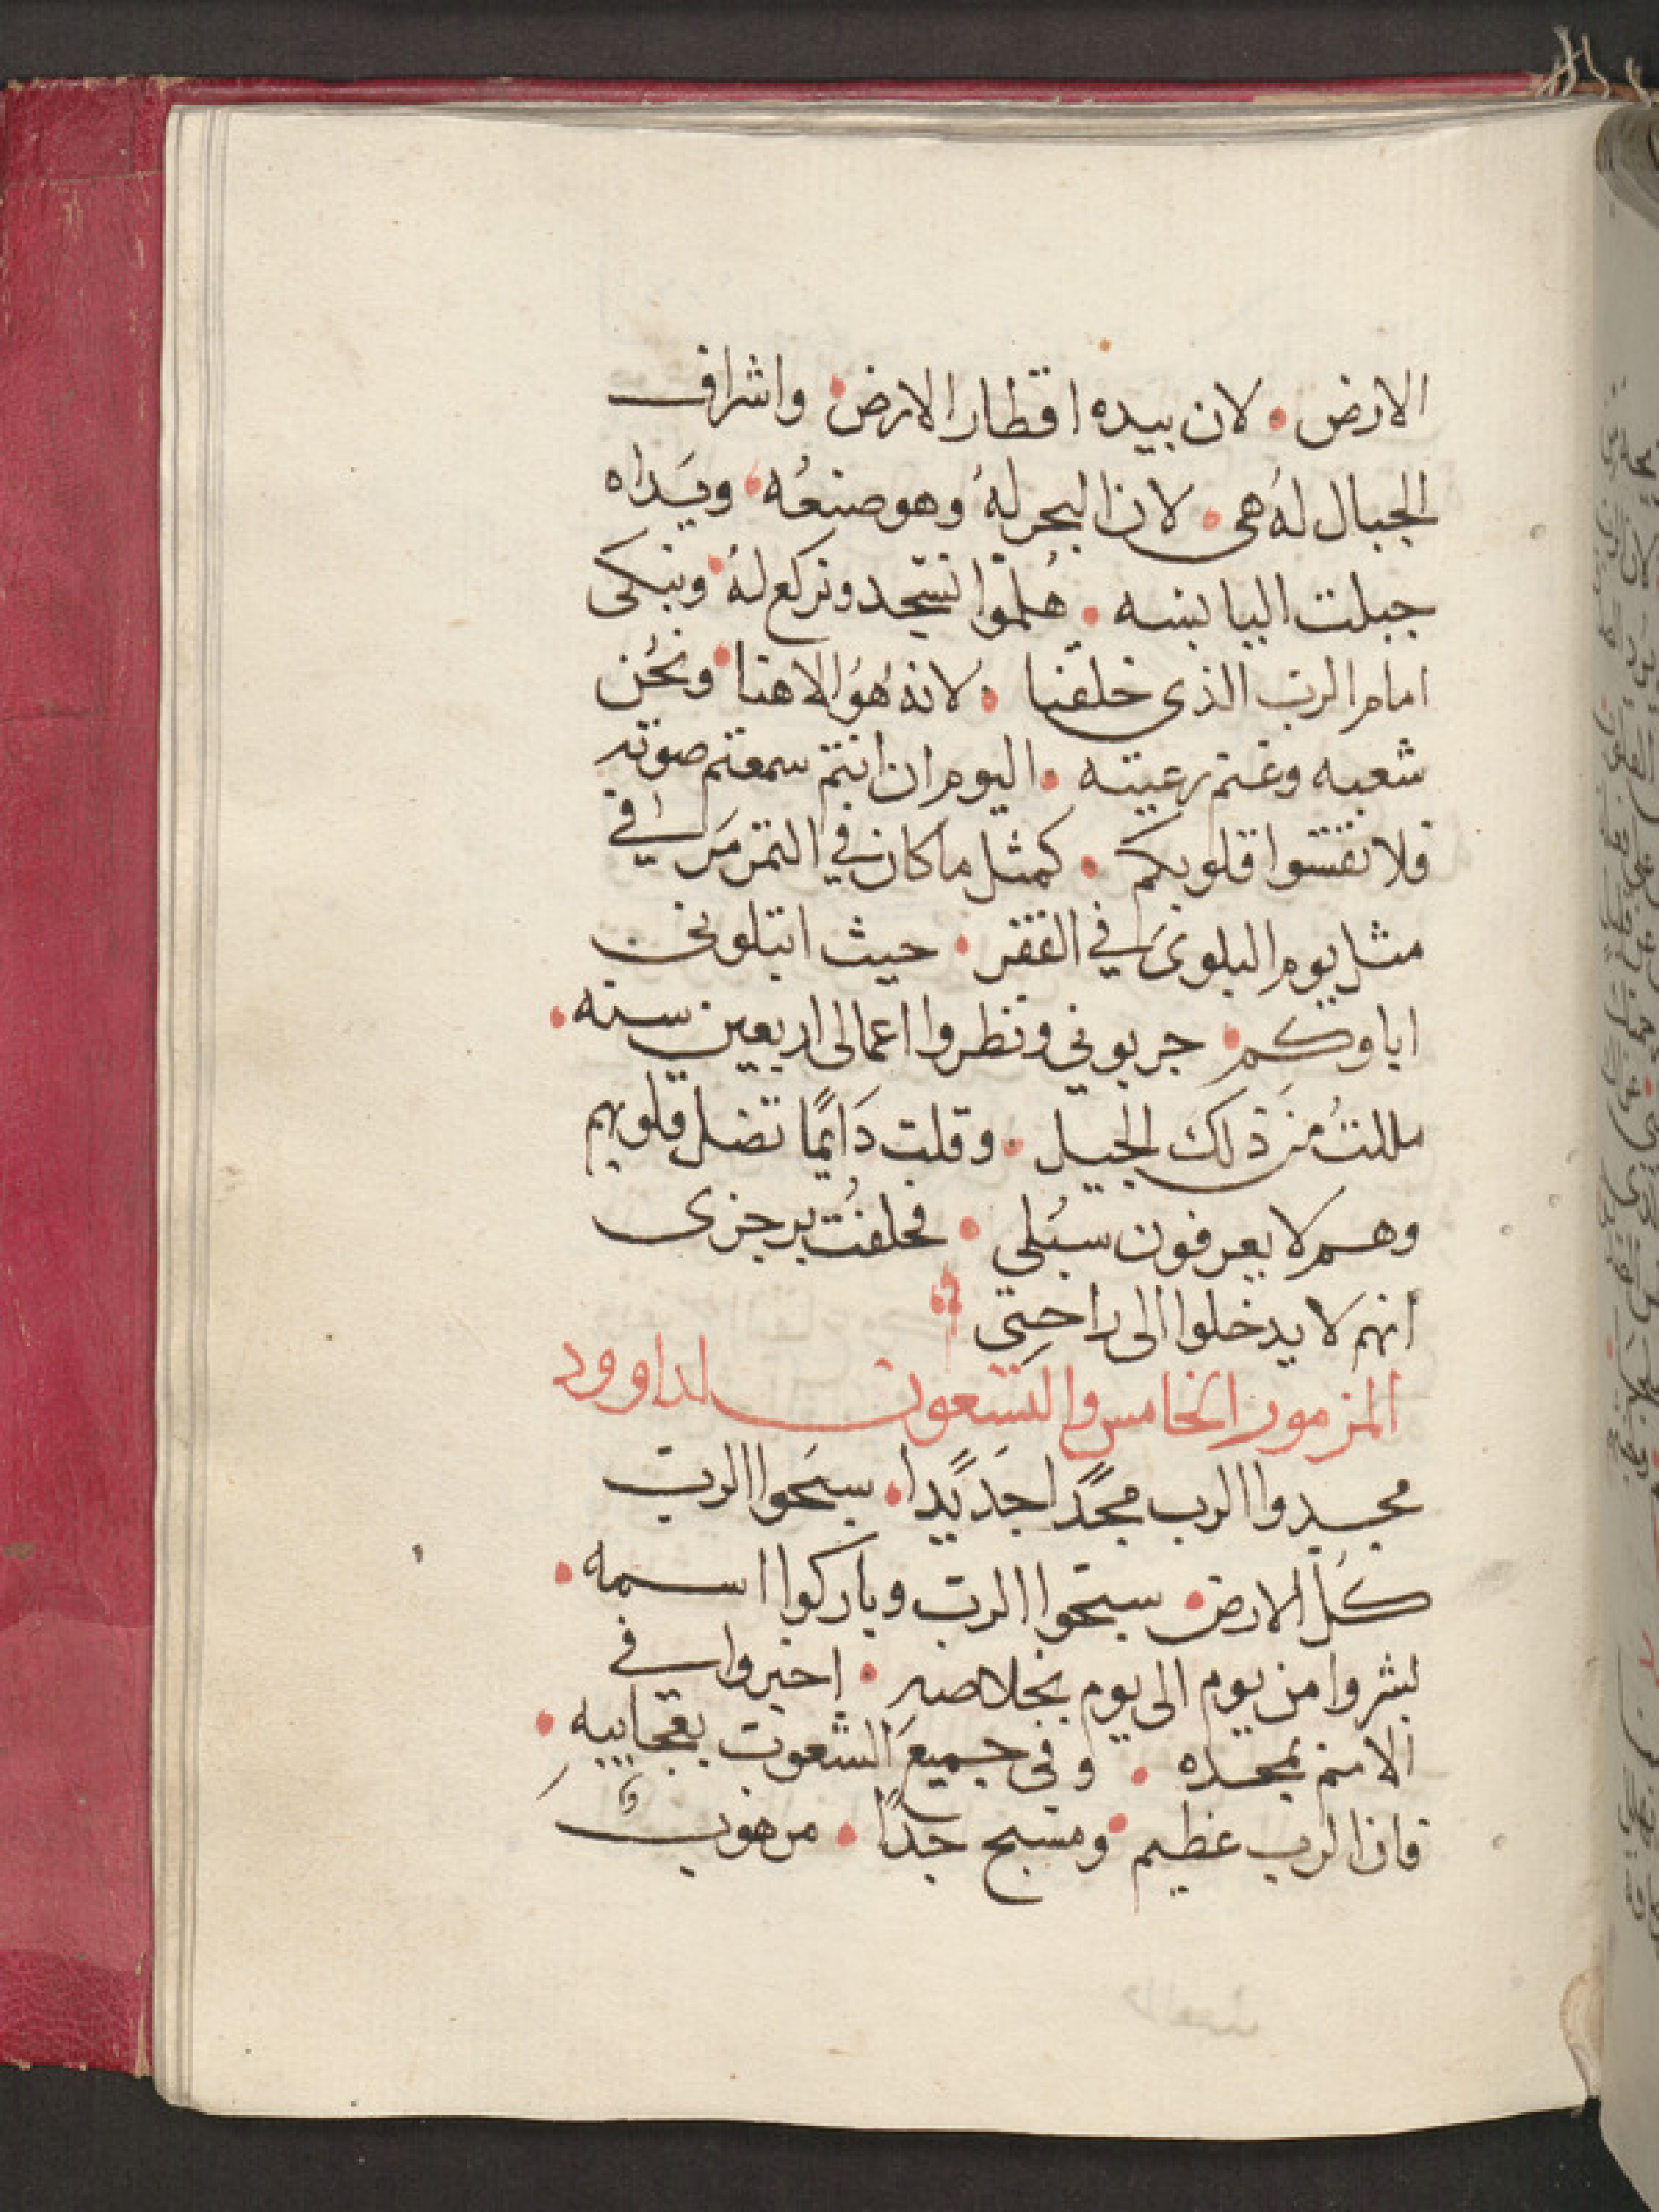 الارض • لان بيده اقطار الارض • واشراف
الجبال لهُ هى • لان البحر لهُ وهو صنعُه • ويَداه
جبلت اليابسه • هُلمّوا نسجد ونركع لهُ • ونبكى
امام الرب الذى خلقنا • لانهُ هُوَ الاهنا • ونحُن
شعبه وغنم رعيته • اليوم ان انتم سمعتم صوته
فلا تقسّوا قلوبكم • كمثل ما كان في التمرمَر في
مثل يوم البلوىَ في القفر • حيث ابتلونى
اباوكم • جربوني ونظروا اعمالى اربعين سنه •
مللتُ منَ ذلك الجيل • وقلت دَايمًا تضل قلوبهم
وهم لا يعرفون سبُلى • فحلفتُ برجزى
انهم لا يدخلوا الى راحتِى
المزمور الخامس والتسعون لداوود
مجدوا الرب مجدًا جَديًدا • سبَحوا الرب
كل الارض • سبّحوا الرب وباركوا اسمه •
بشروا من يوم الى يوم بخلاصهِ • اخبروا في
الامم بمجده • وفى جميعَ الشعوب بعجايبهِ •
فان الرب عظيم • ومسبح جدًا • مرهوب